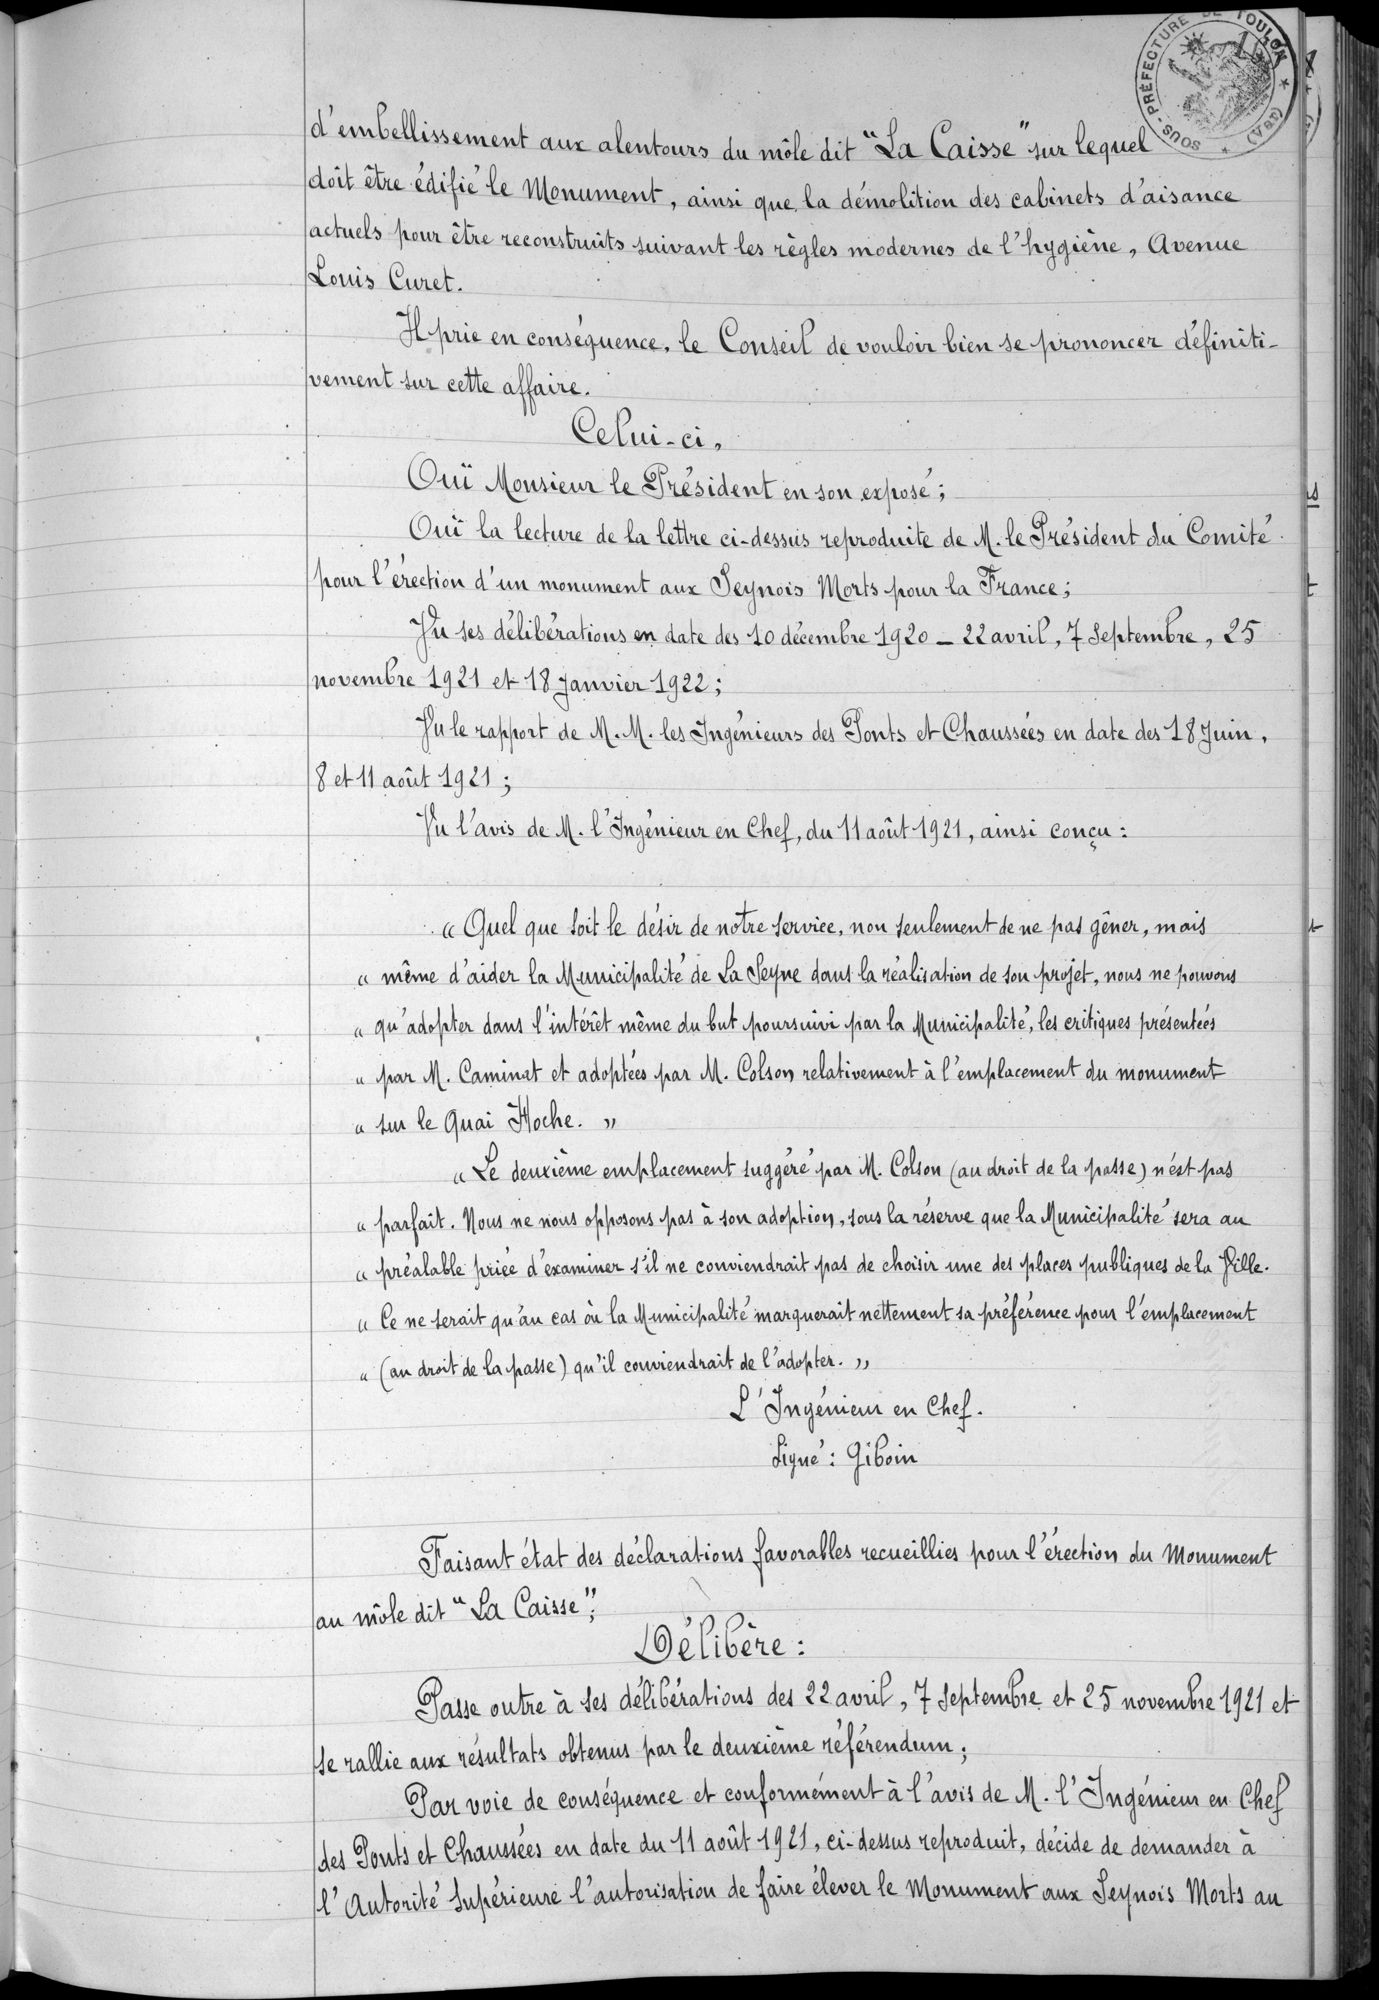 SOUS-PRÉFECTURE DE TOULON
d'embellissement aux alentours du môle dit "La Caisse" sur lequel
doît être édifié le Monument, ainsi que la démolition des cabinets d'aisance
actuels pour être reconstruits suivant les règles modernes de l'hygiène, Avenue
Louis Curet.
Il prie en conséquence, le Conseil de vouloir bien se prononcer définiti-
vement sur cette affaire.
Celui-ci,
Ouï Monsieur le Président en son exposé;
Ouï la lecture de la lettre ci-dessus reproduite de M. le Président du Comité
pour l'érection d'un monument aux Seynois Morts pour la France;
Vu ses délibérations en date des 10 décembre 1920 - 22 avril, 7 Septembre, 25
novembre 1921 et 18 Janvier 1922;
Vu le rapport de M. M. les Ingénieurs des Ponts et Chaussées en date des 18 Juin,
8 et 11 août 1921;
Vu l'avis de M. l'Ingénieur en Chef, du 11 août 1921, ainsi conçu:
"Quel que soit le désir de notre service, non seulement de ne pas gêner, mais
" même d'aider la Municipalité de La Seyne dans la réalisation de son projet, nous ne pouvons
" qu'adopter dans l'intérêt même du but poursuivi par la Municipalité, les critiques présentées
" par M. Caminat et adoptées par M. Colson relativement à l'emplacement du monument
" sur le Quai Hoche. "
" Le deuxième emplacement suggéré par M. Colson (au droit de la passe) n'est pas
" parfait. Nous ne nous opposons pas à son adoption, sous la réserve que la Municipalité sera au
" préalable priée d'examiner s'il ne conviendrait pas de choisir une des places publiques de la Ville.
" Ce ne serait qu'au cas où la Municipalité marquerait nettement sa préférence pour l'emplacement
" (au droit de la passe) qu'il conviendrait de l'adopter. "
L'Ingénieur en Chef.
Signé: Giboin
Faisant état des déclarations favorables recueillies pour l'érection du Monument
au môle dit "La Caisse";
Délibère:
Passe outre à ses délibérations des 22 avril, 7 Septembre et 25 novembre 1921 et
se rallie aux résultats obtenus par le deuxième référendum;
Par voie de conséquence et conformément à l'avis de M. l'Ingénieur en Chef
des Ponts et Chaussées en date du 11 août 1921, ci-dessus reproduit, décide de demander à
l'Autorité Supérieure l'autorisation de faire élever le Monument aux Seynois Morts au